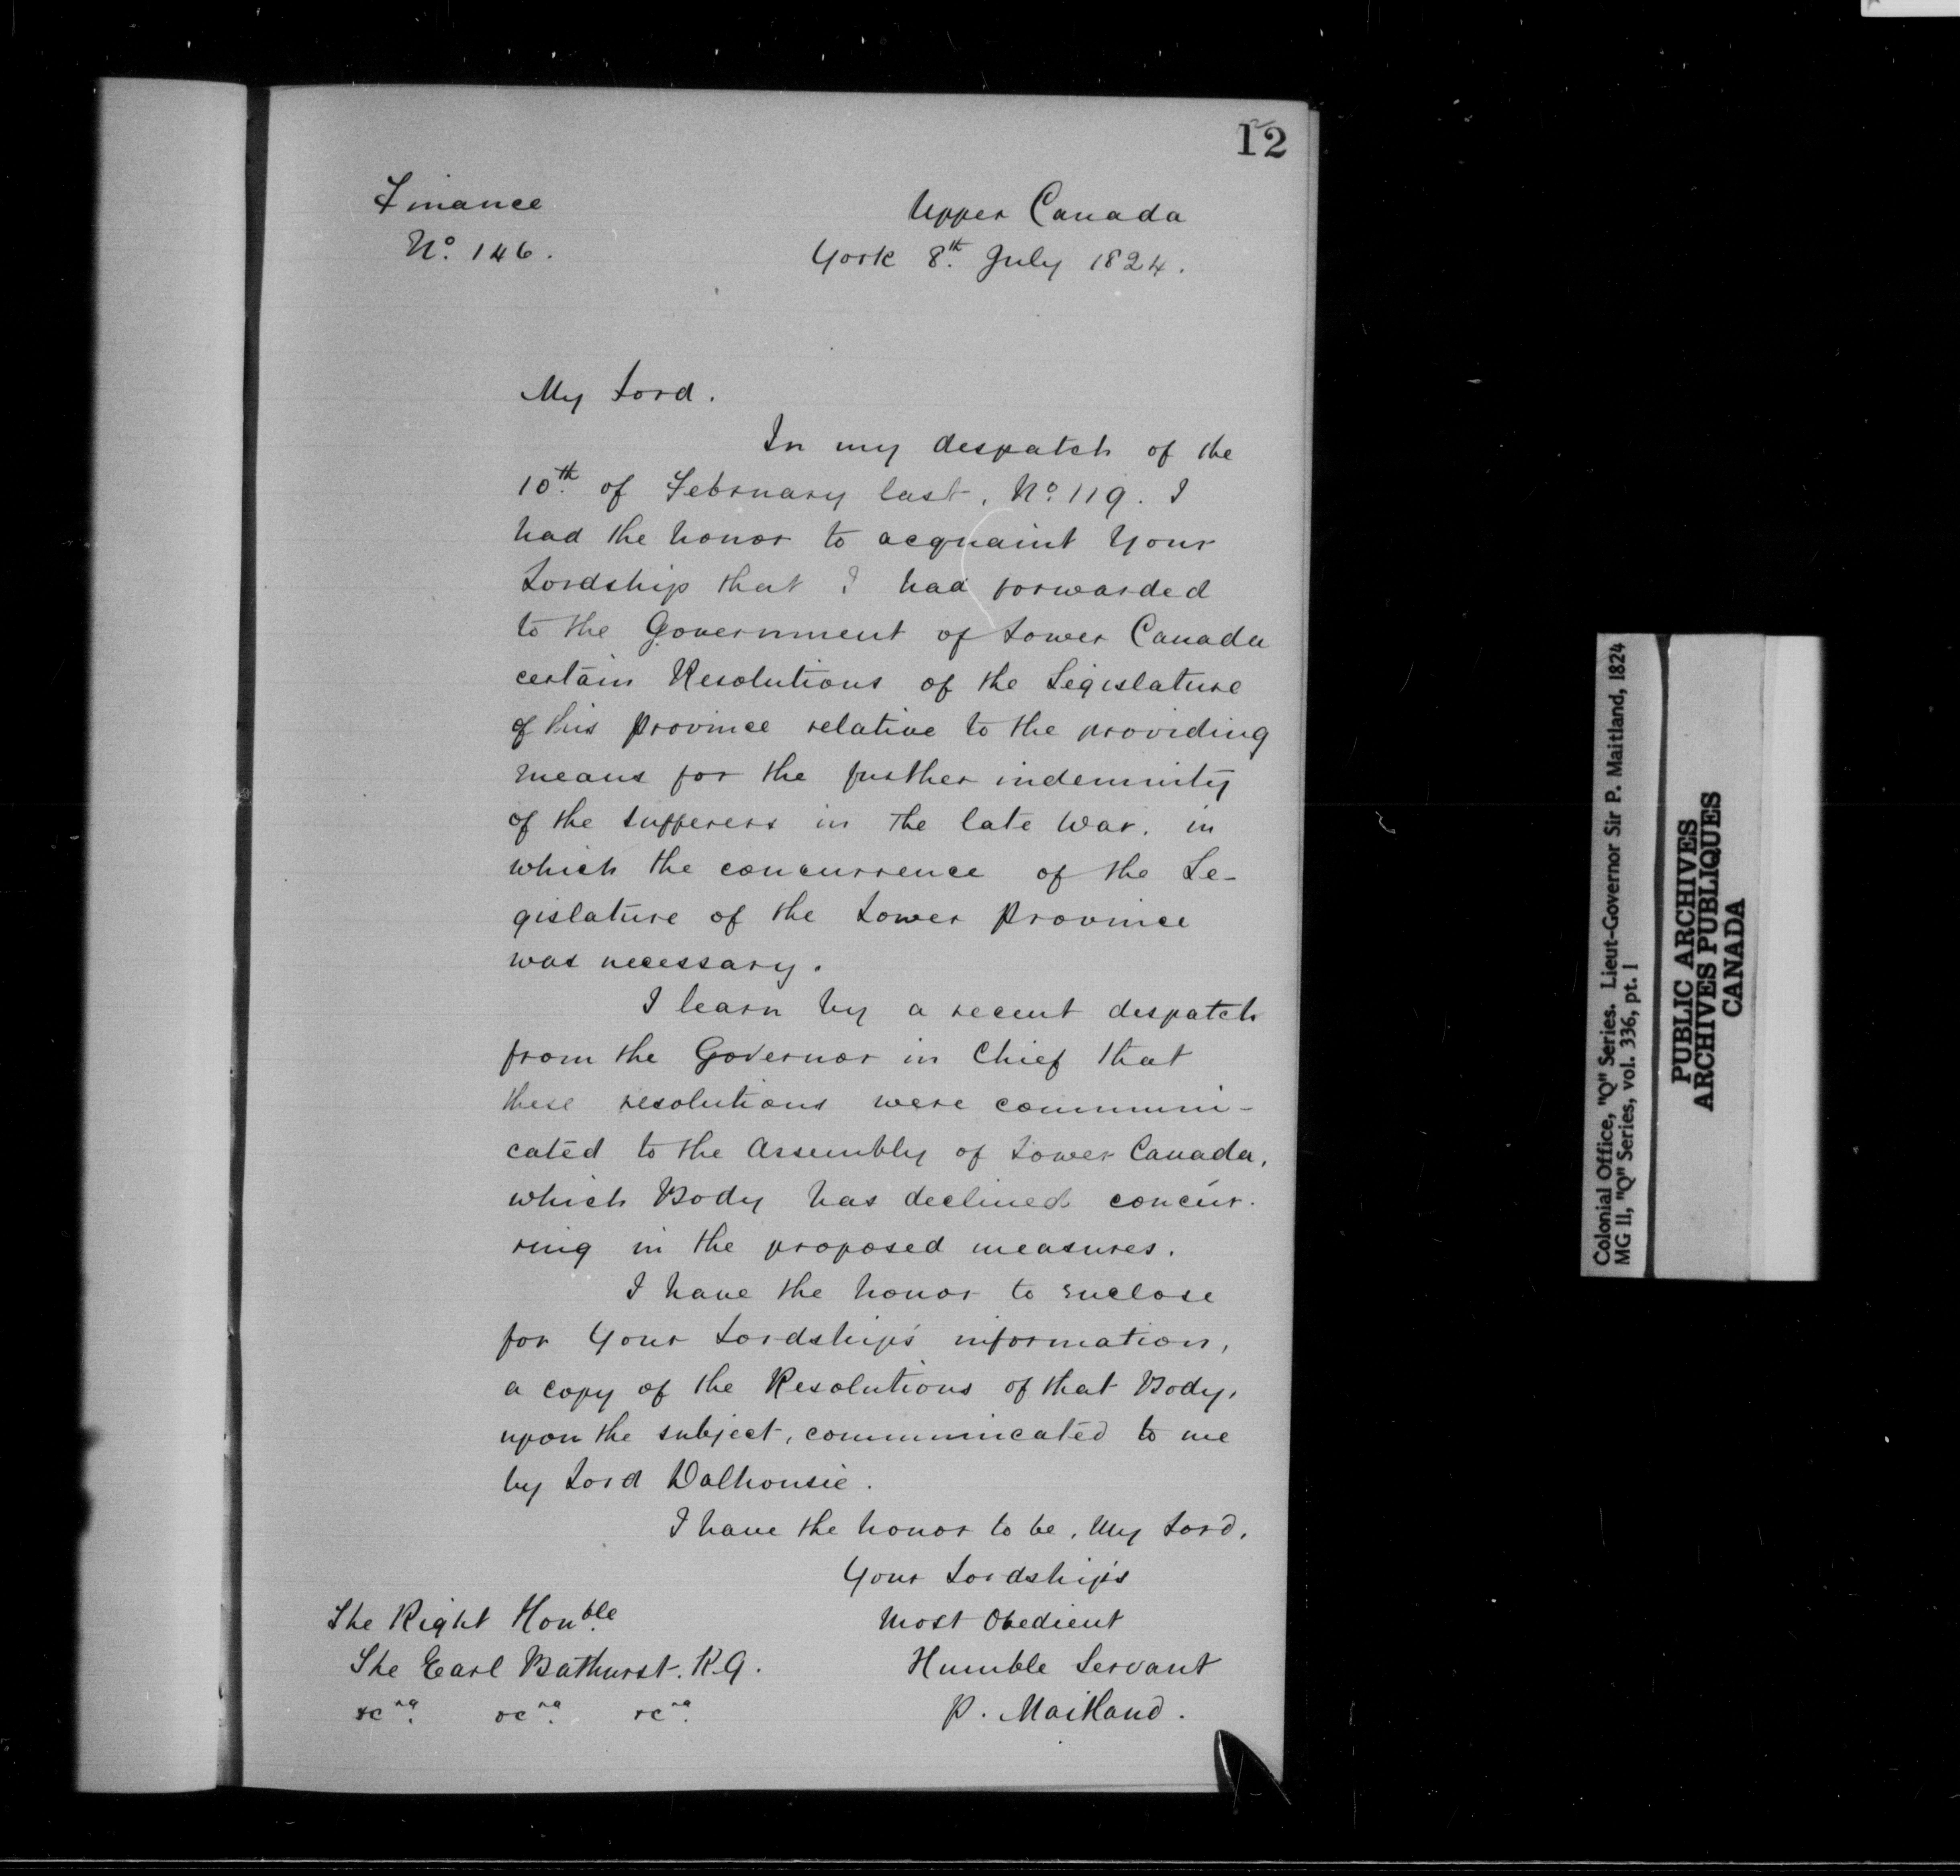 12
Finance
No. 146.
Upper Canada
York 8th July 1824.
My Lord.
In my despatch of the
10th of February last, No. 119. I
had the honor to acquaint Your
Lordship that I had forwarded
to the Government of Lower Canada
certain Resolutions of the Legislature
of this province relative to the providing
means for the further indemnity
of the sufferers in the late War. in
which the concurrence of the Le-
gislature of the Lower Province
was necessary.
I learn by a recent despatch
from the Governor in Chief that
these resolutions were communi-
cated to the Assembly of Lower Canada,
which Body has declined concur-
ring in the proposed measures.
I have the honor to enclose
for Your Lordship's information,
a copy of the Resolutions of that Body,
upon the subject, communicated to me
by Lord Dalhousie.
I have the honor to be, My Lord,
Your Lordship's
Most Obedient
Humble Servant
P. Maitland.
The Right Honble
The Earl Bathurst. K.G.
&c &c &c
Colonial Office, "Q" Series. Lieut-Governor Sir P. Maitland, 1824
MG 11, "Q" Series, vol. 336, pt. 1
PUBLIC ARCHIVES
ARCHIVES PUBLIQUES
CANADA